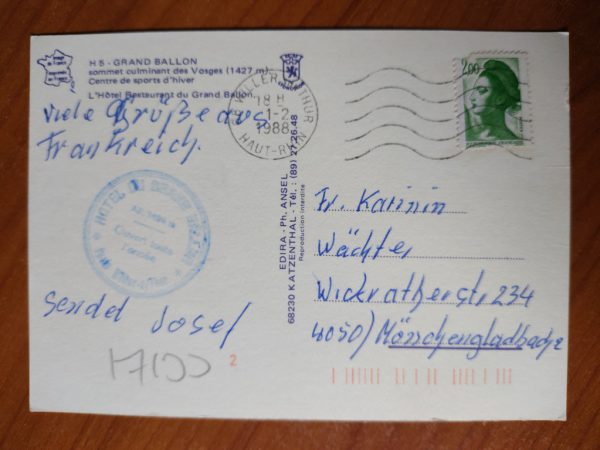 HS - GRAND BALLON
sommet culminant des Vosges (1427 m)
Centre de sports d'hiver
L'Hôtel Restaurant du Grand Ballon
viele Grüße aus
Frankreich.
sendet Josef
2
EDIRA - Ph. ANSEL
68230 KATZENTHAL - Tél. : (89) 27.26.48
Reproduction interdite
WILLER THUR
18 H
1-2
1988
HAUT-RHIN
2,00
HOTEL DU GRAND BALLON
Fr. Karinin
Wächter
Wickratherstr 234
4050) Mönchengladbach